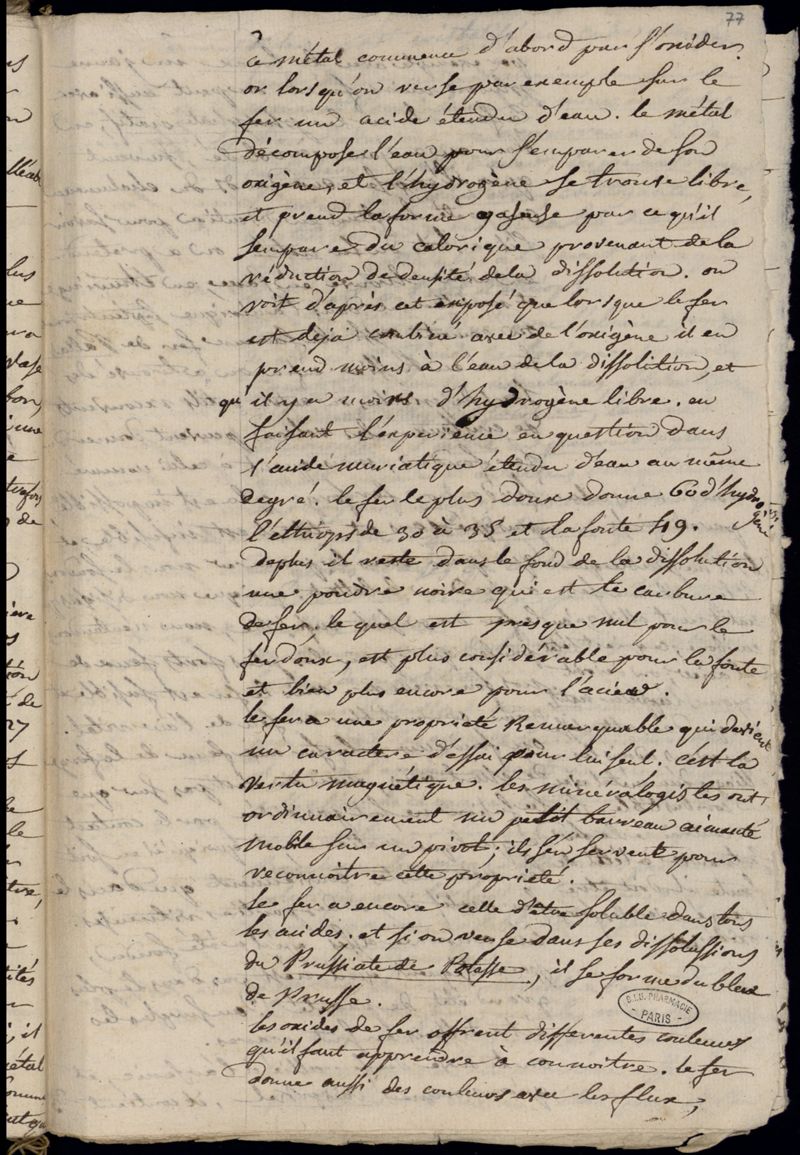 77
ce métal commence d'abord par s'oxider.
or lorsqu'on verse par exemple sur le
fer un acide étendu d'eau. le métal
décompose l'eau pour s'emparer de son
oxigène, et l'hydrogène se trouve libre,
et prend la forme gaseuse par ce qu'il
s'empare du calorique provenant de la
réduction de densité de la dissolution. on
voit d'après cet exposé que lorsque le fer
est deja combiné avec de l'oxigène il en
prend moins à l'eau de la dissolition, et
qu'il y a moins d'hydrogène libre. en
faisant l'experience en question dans
l'acide muriatique étendu d'eau au même
degré. le fer le plus doux donne 60 d'hydrogène
l'ethiops de 30 à 35 et la fonte 49.
depius il reste dans le fond de la dissolution
une poudre noire qui est le carbure
de fer. le quel est presque nul pour le
fer doux, est plus considérable pour la fonte
et bien plus encore pour l'acier.
le fer a une propriété Remarquable qui devient
un caractere d'essai pour lui seul. c'est la
vertu magnétique. les minéralogistes ont
ordinairement un petit barreau aimanté
mobile sur un pivot; ils s'en servent pour
reconnoitre cette propriété.
le fer a encore celle d'etre soluble dans tous
les acides. et si on verse dans ses dissolussions
du Prussiate de Potasse, il se forme du bleu
de Prusse.
les oxides de fer offrent differentes couleurs
qu'il faut apprendre à connoitre. le fer
donne aussi des couleurs avec les flux,
BIB. PHARMACIE
PARIS